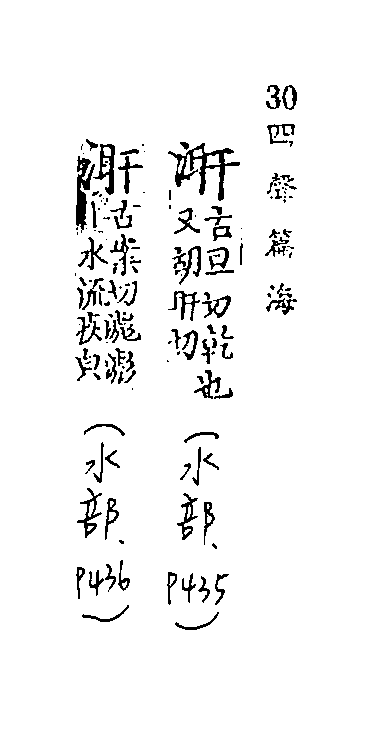 30四聲篇海
古旦切乾也
又胡肝切
（水部、P435）
古柴切
水流疾皃
（水部、P436）